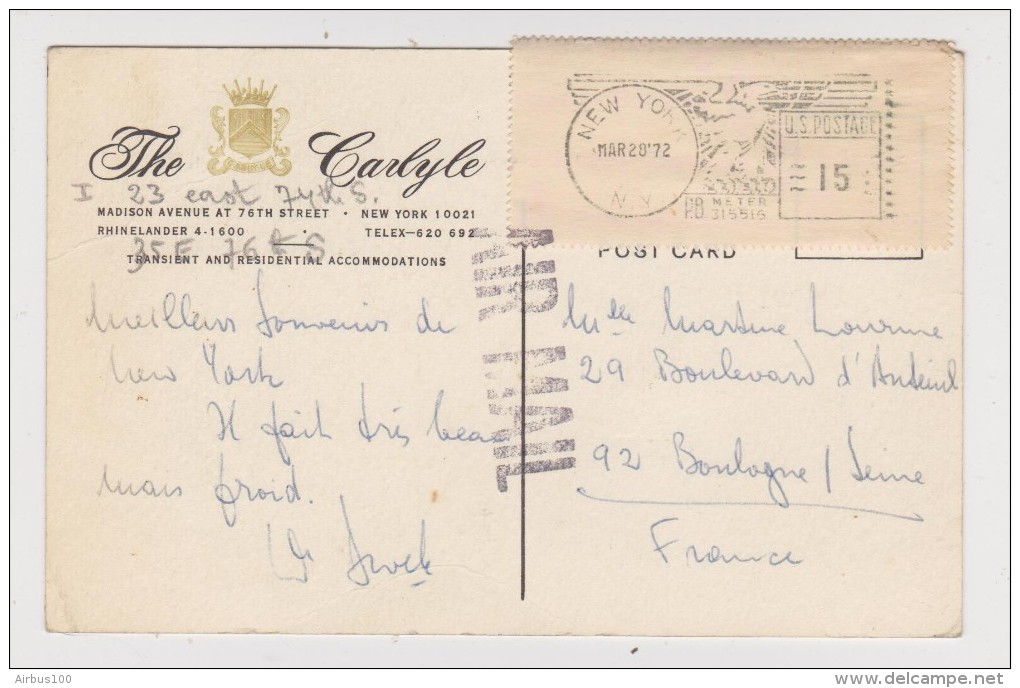 The Carlyle
I 23 east 74th S.
MADISON AVENUE AT 76TH STREET • NEW YORK 10021
RHINELANDER 4-1600 • TELEX—620 692
35 E 76th S
TRANSIENT AND RESIDENTIAL ACCOMMODATIONS
Meilleurs Souvenirs de
New York
Il fait très beau
mais froid.
NEW YORK
MAR 28 '72
N.Y.
U.S. POSTAGE
15
P.B. METER
315516
POST CARD
AIR MAIL
Mlle Martine
29 Boulevard d'Auteuil
92 Boulogne / Seine
France
Airbus100
delcampe.net